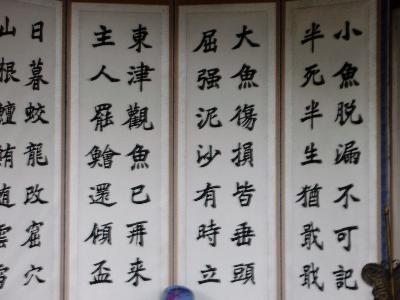 小魚脫漏不可記
半死半生猶戢戢
大魚傷損皆垂頭
屈强泥沙有時立
東津觀魚已再来
主人罷鱠還傾盃
日暮蛟龍改窟穴
山根鱣鮪随雲雷